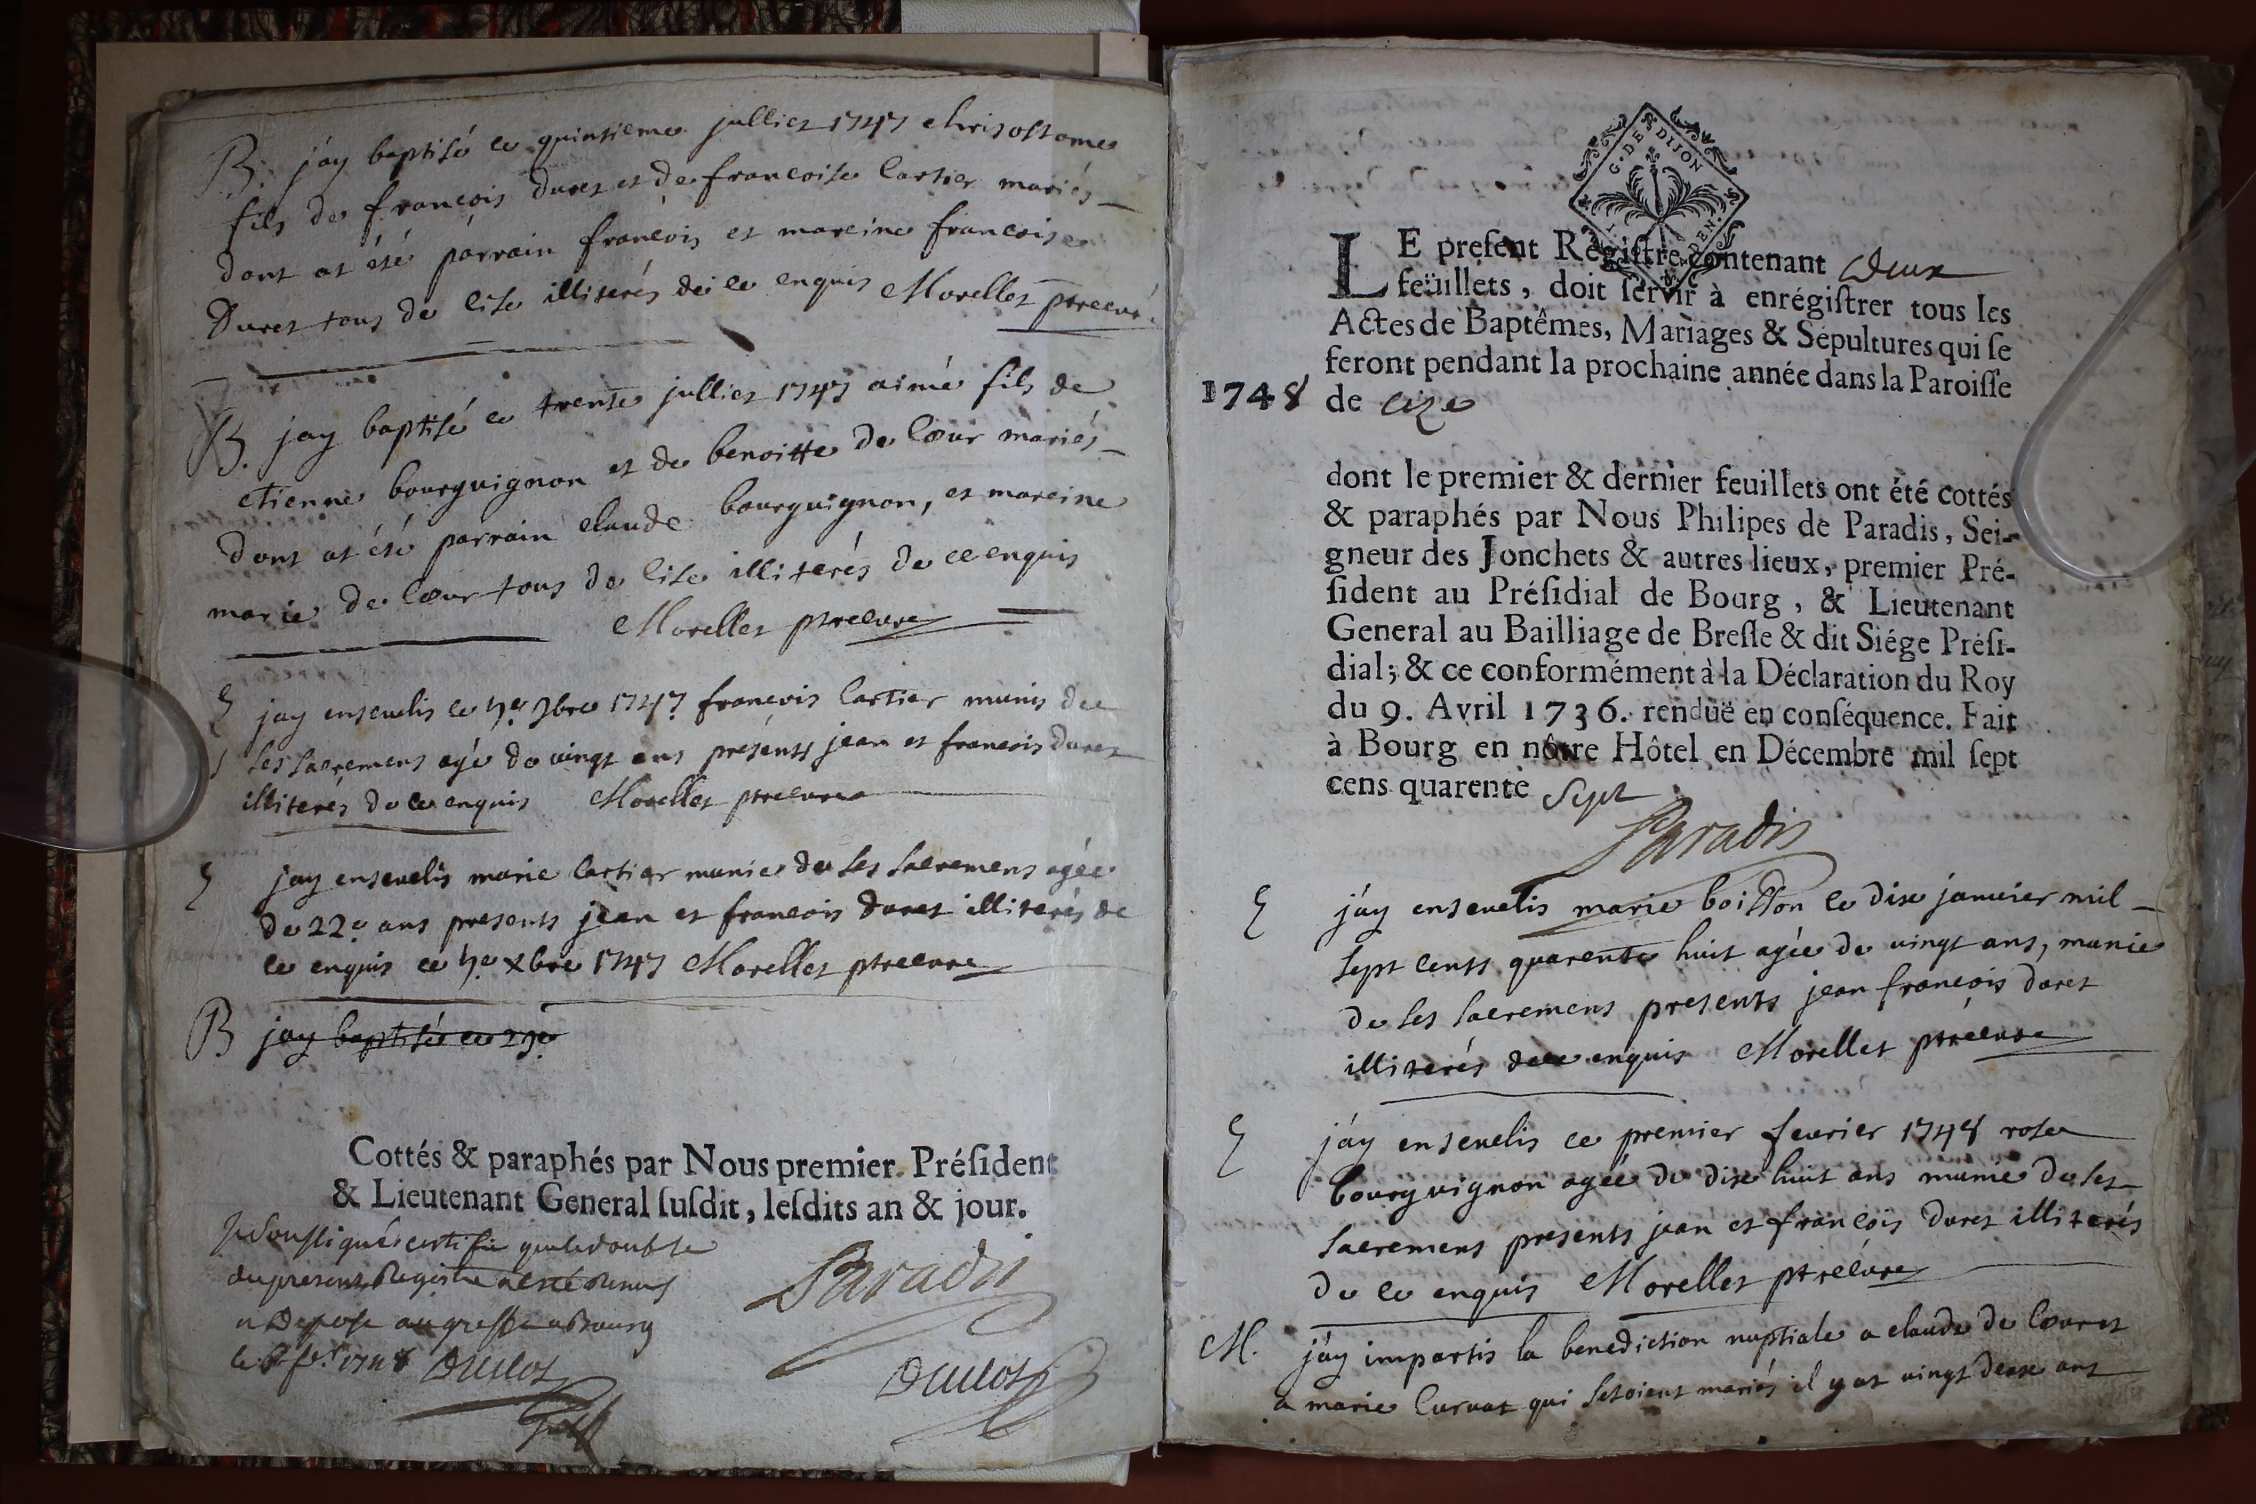 B. j'ay baptisé ce quinsieme julliet 1747 chrisostome
fils de francois duret et de francoise Cartier mariés
dont at été parrain francois et mareine francoise
Duret tous de Cise illiterés de ce enquis Morellet ptre curé
B. jay baptisé ce trente julliet 1747 aimé fils de
etienne bourguignon et de benoitte de Cour mariés
dont at été parrain claude bourguignon, et mareine
marie de Cour tous de Cise illiterés de ce enquis
Morellet ptre curé
E jay ensevelis ce 9bre 1747 francois Cartier munis de
ses sacremens agé de vingt ans présents jean et francois duret
illiterés de ce enquis Morellet ptre curé
E jay ensevelis marie Cartier munie de ses sacremens agée
de 22e ans presents jean et francois duret illiterés de
ce enquis ce xbre 1747 Morellet ptre curé
B jay baptisé ce 29e
Cottés & paraphés par Nous premier Préſident
& Lieutenant General ſuſdit, leſdits an & jour.
Je soussigné certifie que le double
du present Registre a esté remis
et deposé au greffe a Bourg
le fer 1748 Duclos
Paradis
Duclos
G. DE DIJON
LE preſent Regiſtre contenant deux
feüillets, doit ſervir à enrégiſtrer tous les
Actes de Baptêmes, Mariages & Sépultures qui ſe
feront pendant la prochaine année dans la Paroiſſe
1748 de Cize
dont le premier & dernier feuillets ont été cottés
& paraphés par Nous Philipes de Paradis, Sei-
gneur des Jonchets & autres lieux, premier Pré-
ſident au Préſidial de Bourg, & Lieutenant
General au Bailliage de Breſſe & dit Siége Préſi-
dial; & ce conformément à la Déclaration du Roy
du 9. Avril 1736. renduë en conſéquence. Fait
à Bourg en nôtre Hôtel en Décembre mil ſept
cens quarente Sept
Paradis
E j'ay ensevelis marie boisson ce dix janvier mil
sept cents quarente huit agée de vingt ans, munie
de ses sacremens presents jean francois duret
illiterés de ce enquis Morellet ptre curé
E j'ay ensevelis ce premier fevrier 1748 rose
bourguignon agée de dix huit ans munie de ses
sacremens presents jean et francois duret illiterés
de ce enquis Morellet ptre curé
M. j'ay impartis la benediction nuptiale a claude de Cour et
a marie Curvat qui setoient mariés il y at vingt deux ans